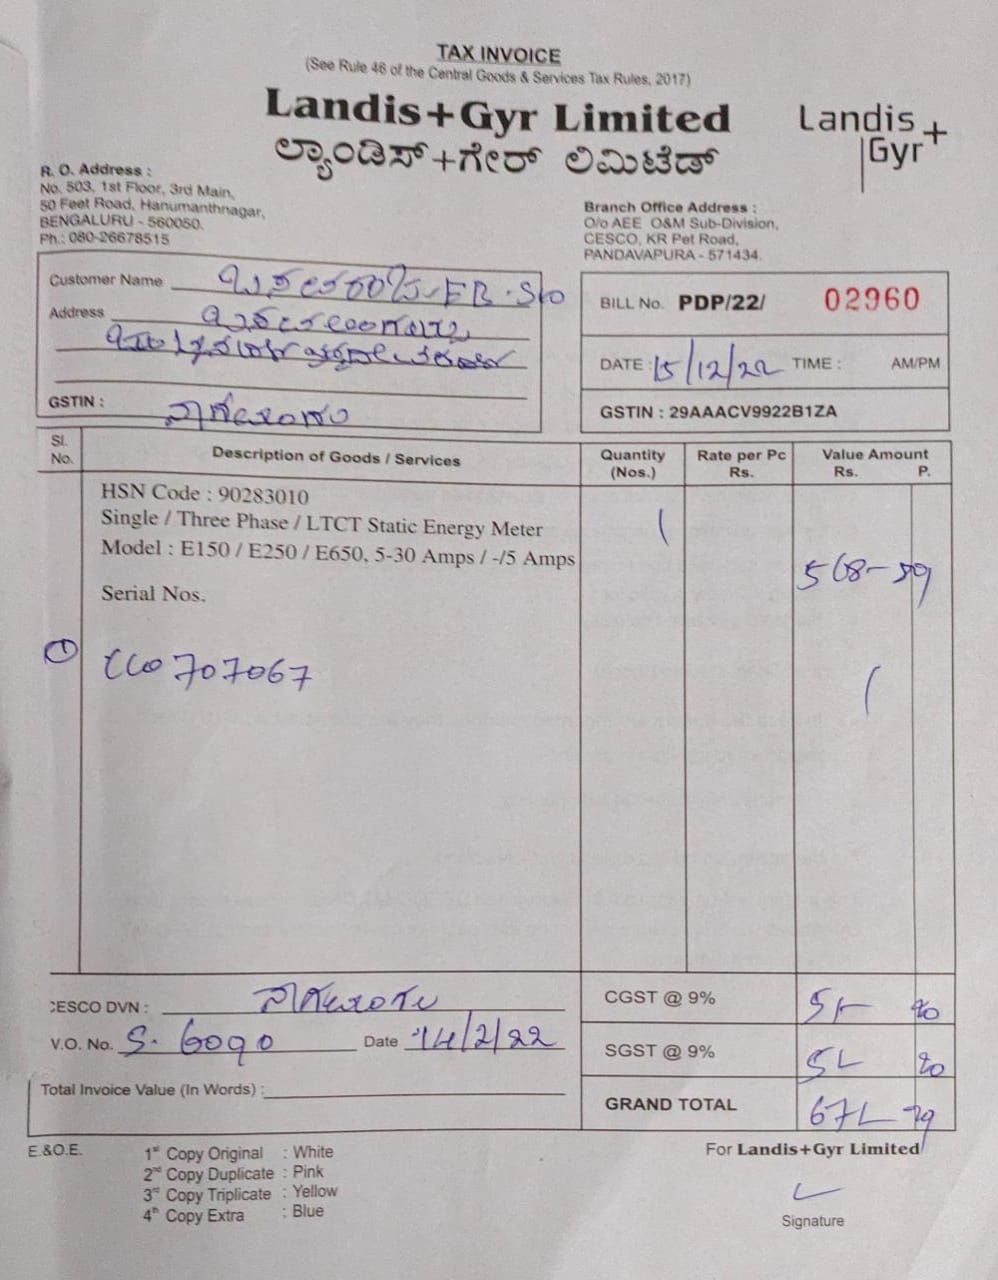 TAX INVOICE
(See Rule 46 of the Central Goods & Services Tax Rules, 2017)
Landis+Gyr Limited
ಲ್ಯಾಂಡಿಸ್+ಗೇರ್ ಲಿಮಿಟೆಡ್
Landis
Gyr+
R. O. Address :
No. 503, 1st Floor, 3rd Main,
50 Feet Road, Hanumanthnagar,
BENGALURU - 560050.
Ph.: 080-26678515
Branch Office Address :
O/o AEE O&M Sub-Division,
CESCO, KR Pet Road,
PANDAVAPURA - 571434.
Customer Name
Address
GSTIN :
BILL No. PDP/22/ 02960
DATE : 15/12/22 TIME : AM/PM
GSTIN : 29AAACV9922B1ZA
Sl. No. Description of Goods / Services Quantity (Nos.) Rate per Pc Rs. Value Amount Rs. P.
HSN Code : 90283010
Single / Three Phase / LTCT Static Energy Meter 1
Model : E150 / E250 / E650, 5-30 Amps / -/5 Amps
Serial Nos.
① 707067
CESCO DVN :
CGST @ 9%
V.O. No. S. 6090 Date 14/2/22
SGST @ 9%
Total Invoice Value (In Words) :
GRAND TOTAL
E.&O.E.
1st Copy Original : White
2nd Copy Duplicate : Pink
3rd Copy Triplicate : Yellow
4th Copy Extra : Blue
For Landis+Gyr Limited
Signature